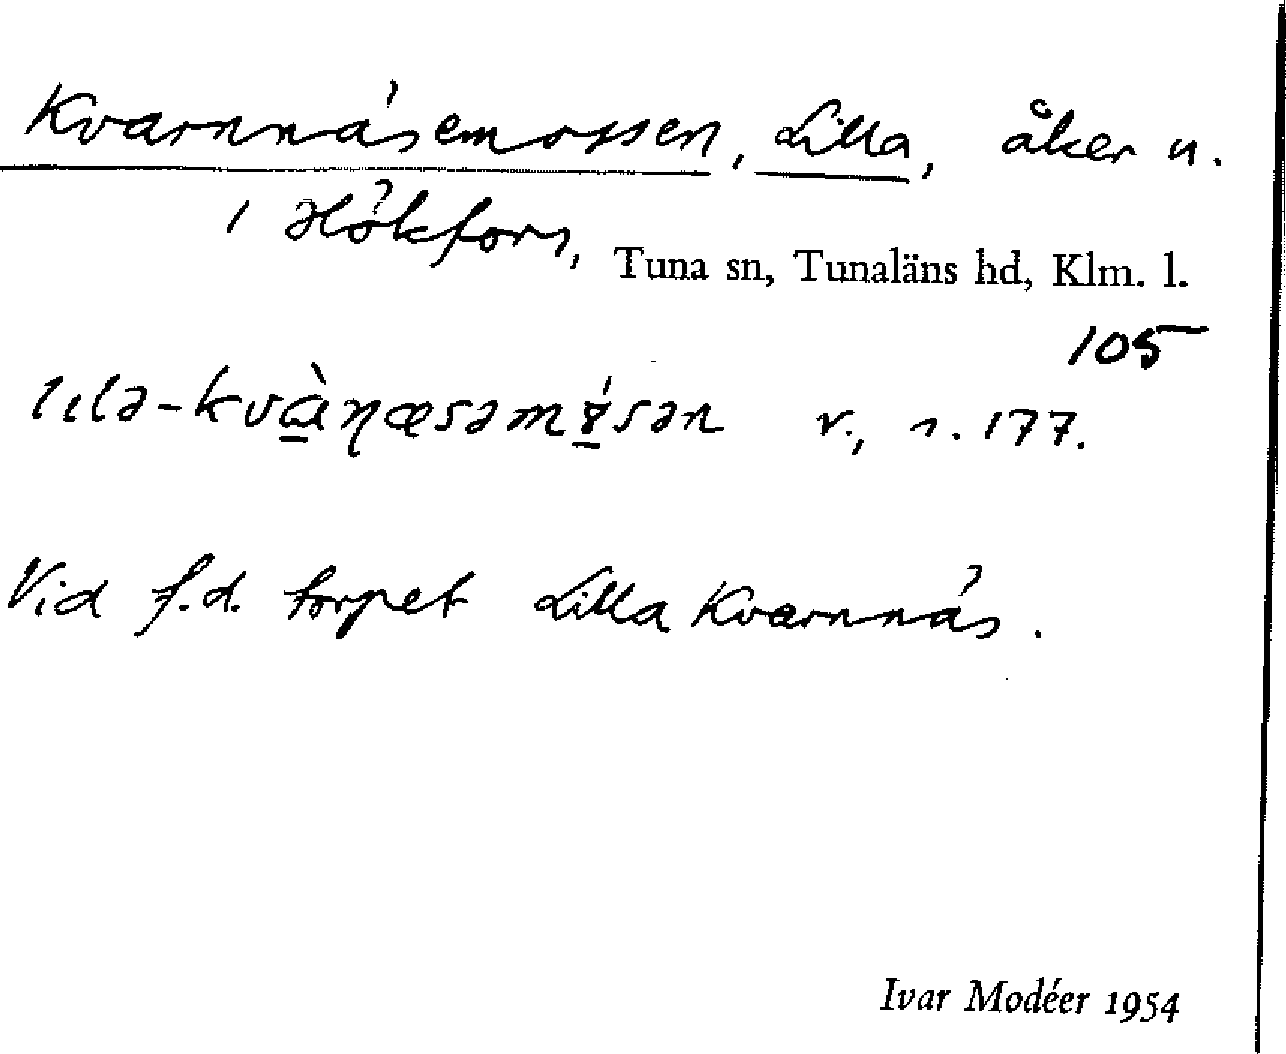 Kvarnnäsemossen, Lilla, åker u.
i Hökfors, Tuna sn, Tunaläns hd, Klm. l.
105
v., n. 177.
Vid f.d. torpet Lilla Kvarnnäs.
Ivar Modéer 1954